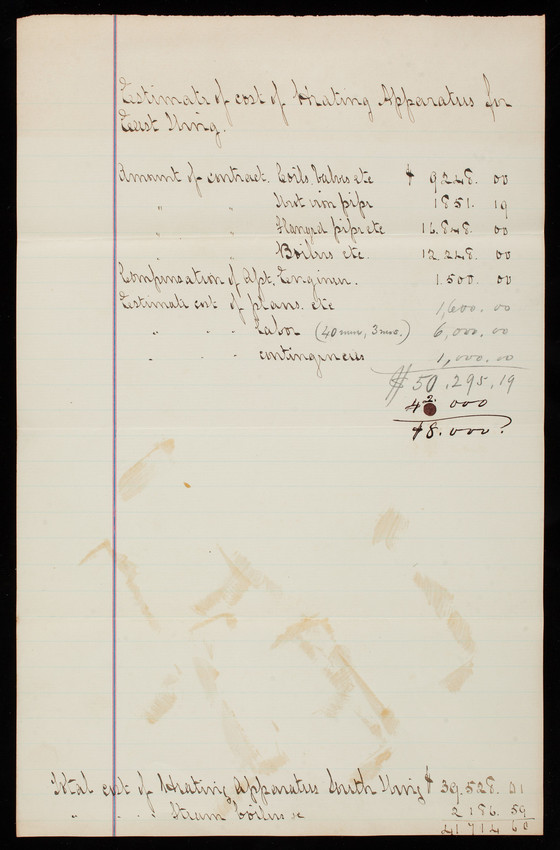 Estimate of cost of Heating Apparatus for
East Wing.
Amount of contract. Coils, Valves etc $ 9248. 00
" " Wrot iron pipe 1851. 19
" " Flanged pipe etc 16.848. 00
" " Boilers etc. 12.248. 00
Compensation of Apt. Engineer. 1.500. 00
Estimate cost of plans. etc 1,600. 00
" " " Labor (40 men, 3 mos.) 6,000. 00
" " " contingencies 1,000. 00
$50,295.19
000
48.000?
Total cost of Heating Apparatus South Wing $ 39.528. 01
" " " " Steam boilers &c 2186. 59
41714 60